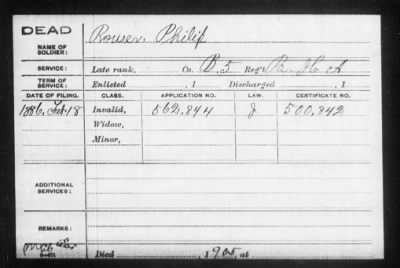 DEAD
NAME OF SOLDIER:
Rouser, Philip
SERVICE:
Late rank, Co. B. 5 Reg't
TERM OF SERVICE:
Enlisted , 1 Discharged , 1
DATE OF FILING. CLASS. APPLICATION NO. LAW. CERTIFICATE NO.
1886, Feb. 18 Invalid, 562,844 J 500,842
Widow,
Minor,
ADDITIONAL SERVICES:
REMARKS:
Died , 1905, at